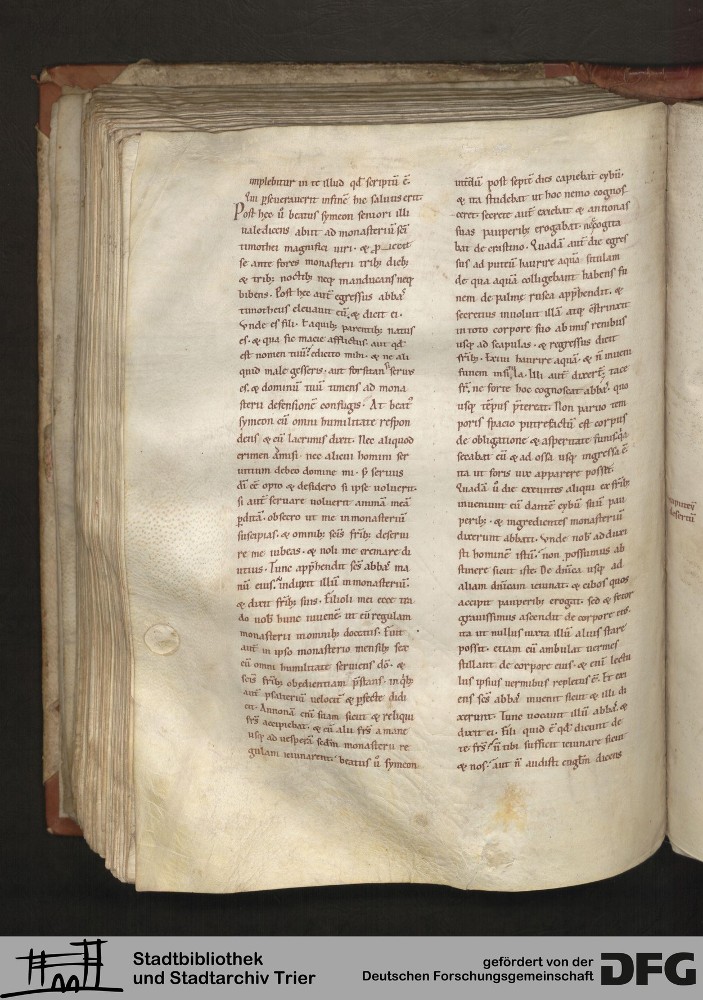 implebitur in te illud qd scriptū ē.
Qui pseuerauerit infinē hic saluus erit.
Post hec ū beatus symeon seniori illi
ualedicens abiit ad monasteriū scī
timothei magnifici uiri. &
se ante fores monasterii trib; dieb;
& trib; noctib; neq; manducans neq;
bibens. Post hec aut egressus abba
timotheus eleuauit eū, & dicit ei.
Vnde es fili. & a quib; parentib; natus
es. & qua sic macie afflictus. aut qd
est nomen tuū edicito mihi. & ne ali
quid male gesseris. aut forsitan seruus
es. & dominū tuū timens ad mona
sterii defensionē confugis. At beat
symeon cū omni humilitate respon
dens & cū lacrimis dixit. Nec aliquod
crimen amisi. nec alieni homini ser
uitium debeo domine mi. s; seruus
dī eē opto & desidero si ipse uoluerit.
si aut seruare uoluerit animā meā
pditā. obsecro ut me in monasteriū
suscipias. & omnib; scis frib; deserui
re me iubeas. & noli me cremare di
utius. Tunc apphendit scs abba ma
nū eius. induxit illū in monasteriū.
& dixit frib; suis. Filioli mei ecce tra
do uob hunc iuuenē. ut eū regulam
monasterii in omnib; doceatis. Fuit
aut in ipso monasterio mensib; sex
cū omni humilitate seruiens dō. &
scis frib; obedientiam pstans. in qib;
aut psalteriū uelocit & pfecte didi
cit. Annonā enī suam sicut & reliqui
frs accipiebat. & cū alii frs a mane
usq; ad uesperā scdm monasterii re
gulam ieiunarent. beatus ū symeon
interdū post septē dies capiebat cybū.
& ita studebat ut hoc nemo cognos
ceret. secrete aut exiebat & annonas
suas pauperib; erogabat. nec cogita
bat de crastino. Quadā aut die egres
sus ad puteū haurire aquā situlam
de qua aquā colligebant habens fu
nem de palme rusca apphendit. &
secretius inuoluit illā atq; cstrinxit
in toto corpore suo ab imis renibus
usq; ad scapulas. & regressus dicit
frib;. Exiui haurire aquā. & n inueni
funem in situla. Illi aut dixert. tace
fr. ne forte hoc cognoscat abba. quo
usq; tēpus ptereat. Non paruo tem
poris spacio putrefactū est corpus
de obligatione & asperitate funis. qa
secabat eū & ad ossa usq; ingressa ē.
ita ut foris uix apparere posset.
Quadā ū die exeuntes aliqui ex frib;
inuenerunt eū dantē cybū suū pau
perib;. & ingredientes monasteriū
dixerunt abbati. Vnde nob adduxi
sti hominē istū. non possumus ab
stinere sicut iste. De dnica usq; ad
aliam dnicam ieiunat. & cibos quos
accipit pauperib; erogat. sed & fetor
grauissimus ascendit de corpore eius.
ita ut nullus iuxta illū alius stare
possit. etiam cū ambulat uermes
stillant de corpore eius. & enī lectu
lus ipsius uermibus repletus ē. Et exi
ens scs abba inuenit sicut & illi di
xerunt. Tunc uocauit illū abba. &
dixit ei. Fili quid ē qd dicunt de
te frs. n tibi sufficit ieiunare sicut
& nos. aut n audisti euglm dicens
Stadtbibliothek
und Stadtarchiv Trier
gefördert von der
Deutschen Forschungsgemeinschaft
DFG